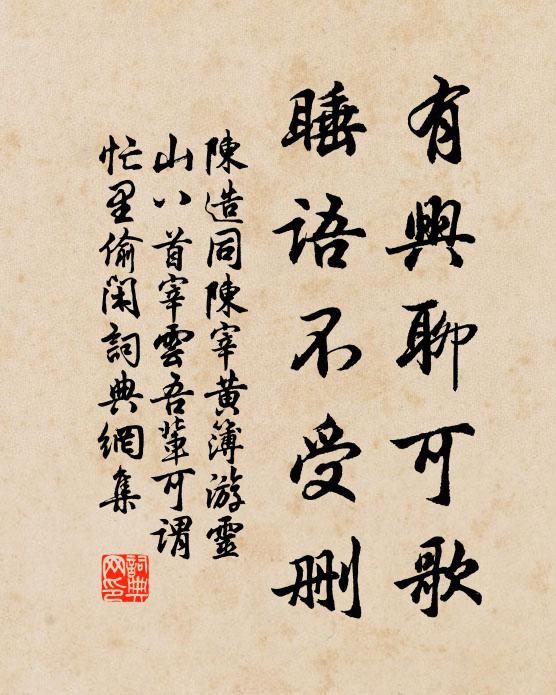 有興聊可歌
睡語不受刪
陳造同陳宰黃簿游靈
山八首宰雲吾輩可謂
忙里偷閑詞典網集
詞典網印